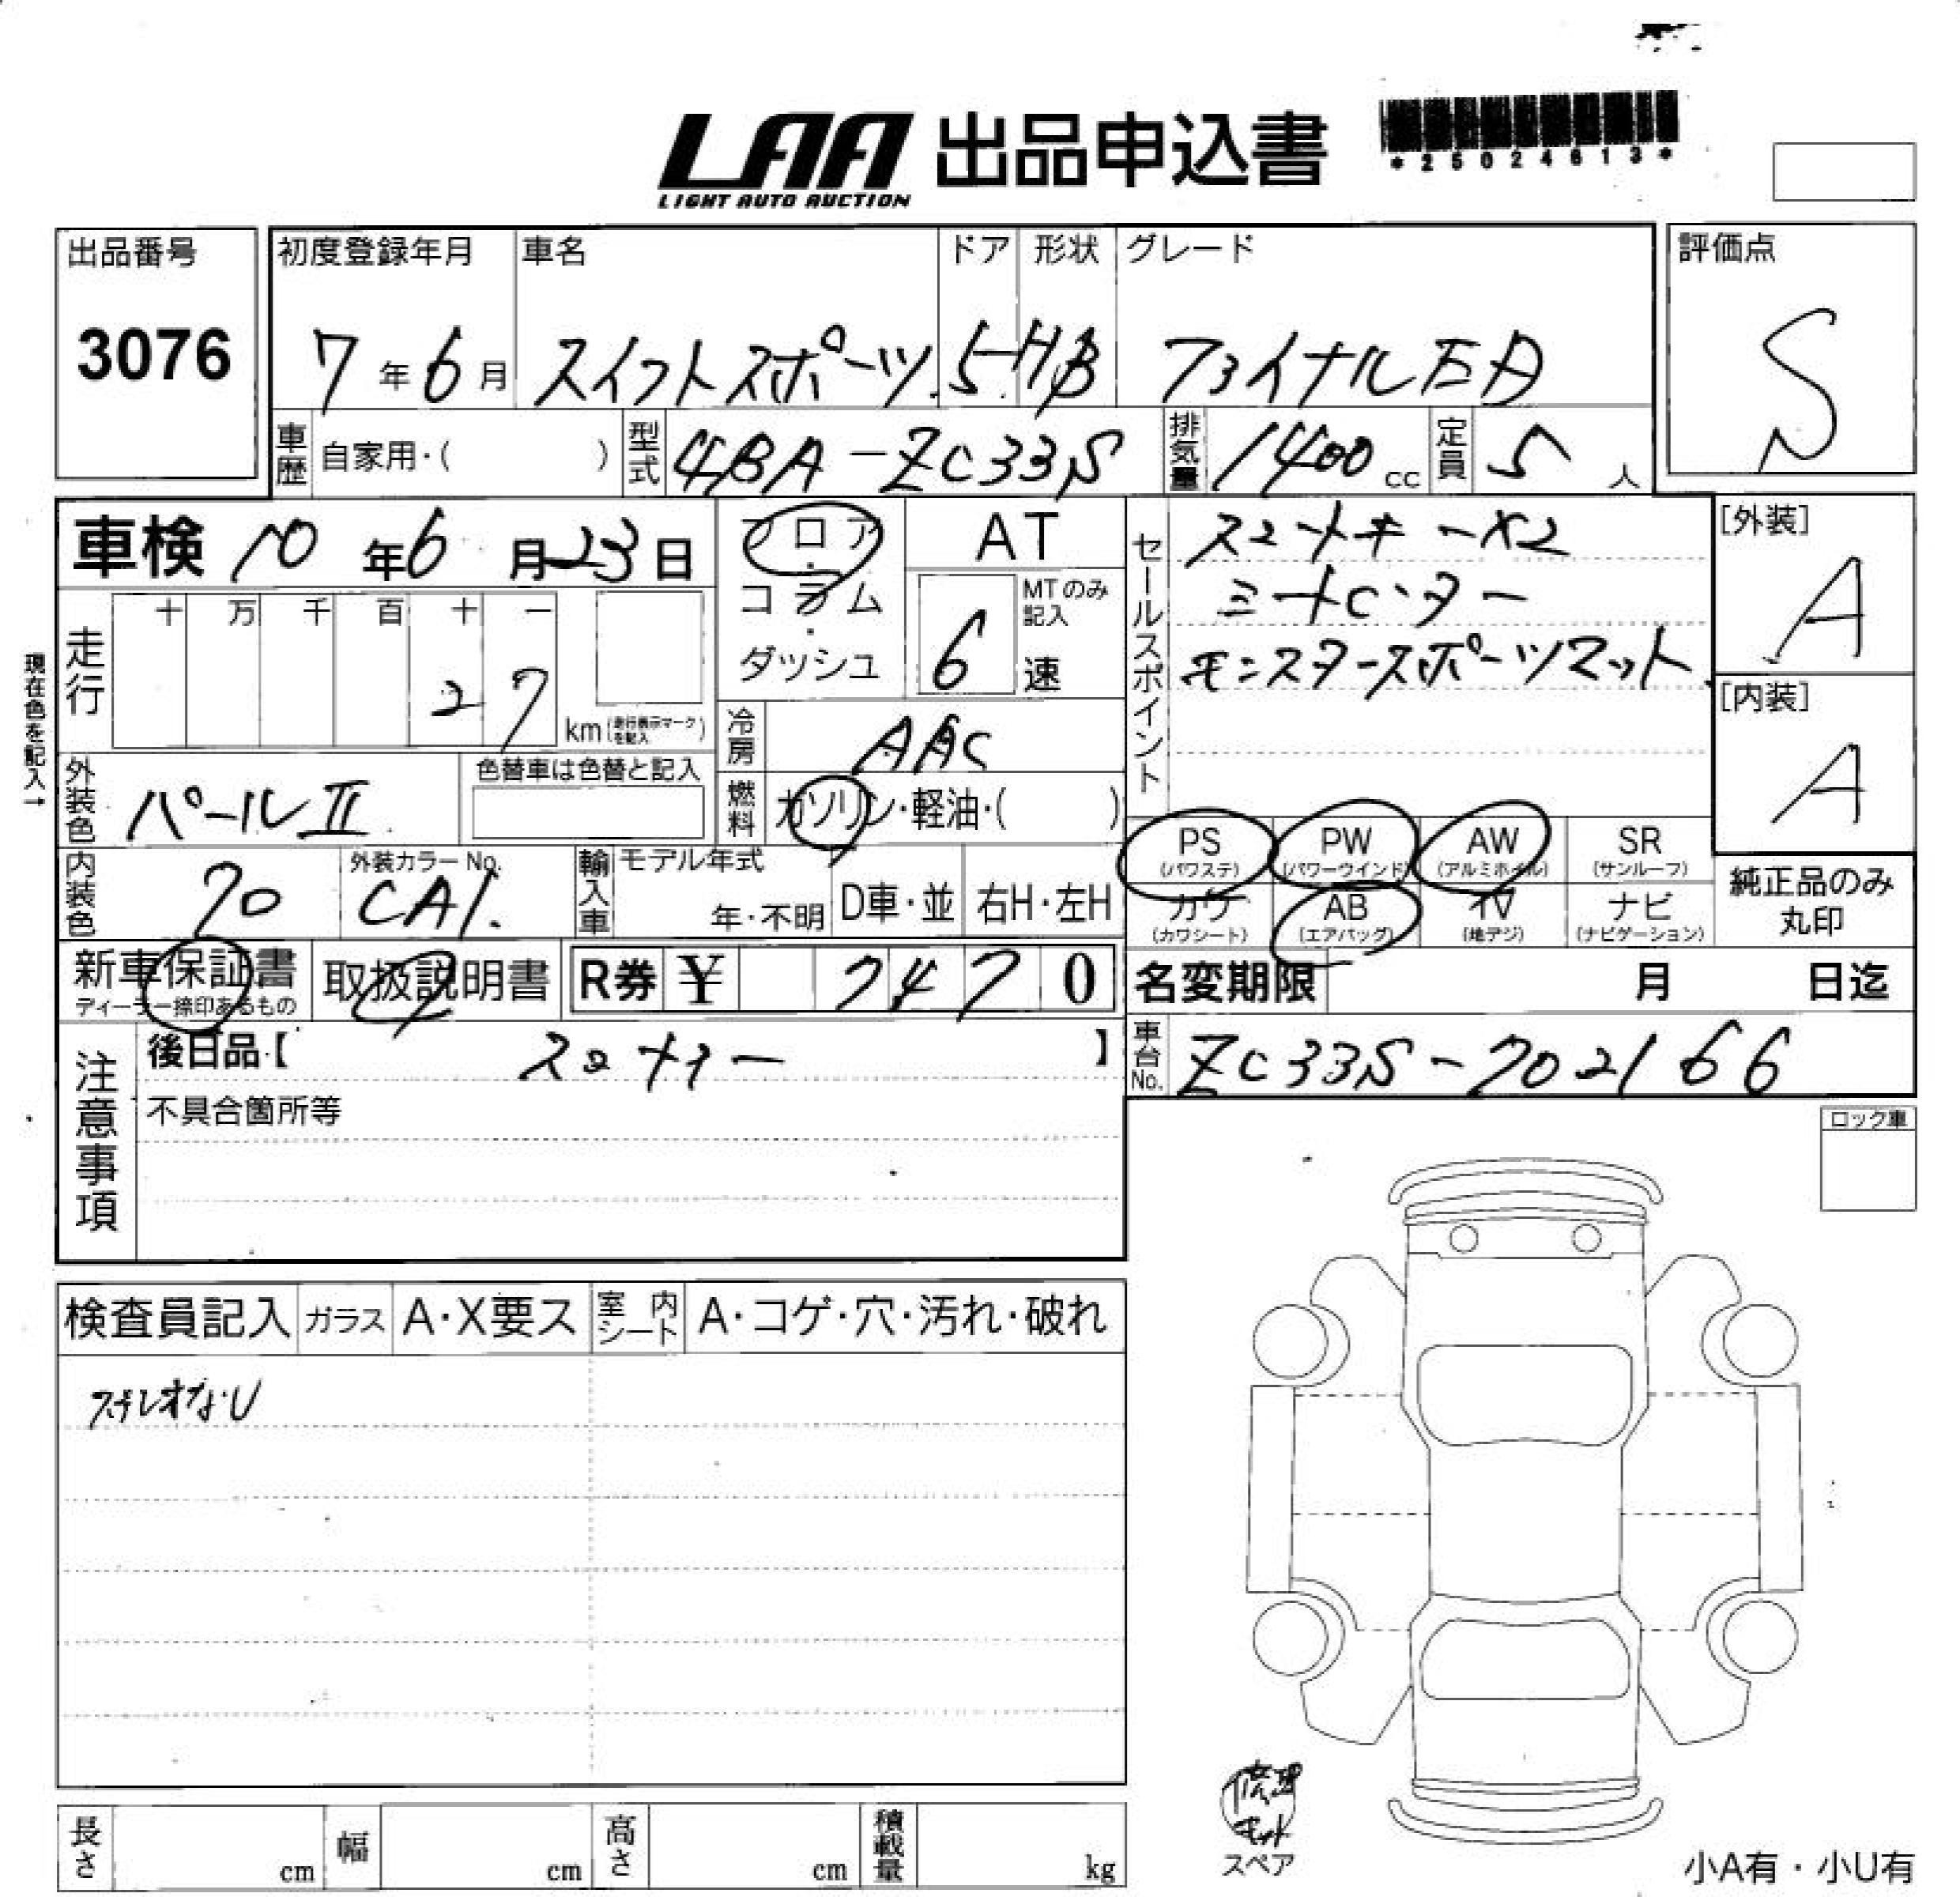 LAA 出品申込書
LIGHT AUTO AUCTION
*25024613*
出品番号
3076
初度登録年月 車名 ドア 形状 グレード
7年6月 スイフトスポーツ 5 HB ファイナルED
評価点
S
車歴 自家用・( ) 型式 4BA-ZC33S 排気量 1400cc 定員 5人
車検 10年6月23日
フロア・コラム・ダッシュ
AT
MTのみ記入
6速
現在色を記入→
走行 十 万 千 百 十 一
27 km(走行表示マークを記入)
冷房 AAC
燃料 ガソリン・軽油・( )
外装色 パールII
色替車は色替と記入
内装色 70
外装カラーNo.
CA1.
輸入車 モデル年式
年・不明 D車・並 右H・左H
セールスポイント
スマートキー×2
ミートC・ター
モンスタースポーツマット
[外装]
A
[内装]
A
PS (パワステ) PW (パワーウインド) AW (アルミホイル) SR (サンルーフ)
カワ (カワシート) AB (エアバッグ) TV (地デジ) ナビ (ナビゲーション)
純正品のみ
丸印
新車保証書
ディーラー捺印あるもの
取扱説明書
R券 ¥ 7470
名変期限 月 日迄
車台No. ZC33S-702166
注意事項
後日品【 】
不具合箇所等
ロック車
検査員記入 ガラス A・X要ス 室内シート A・コゲ・穴・汚れ・破れ
ステレオなし
修理
キット
スペア
長さ cm 幅 cm 高さ cm 積載量 kg
小A有・小U有